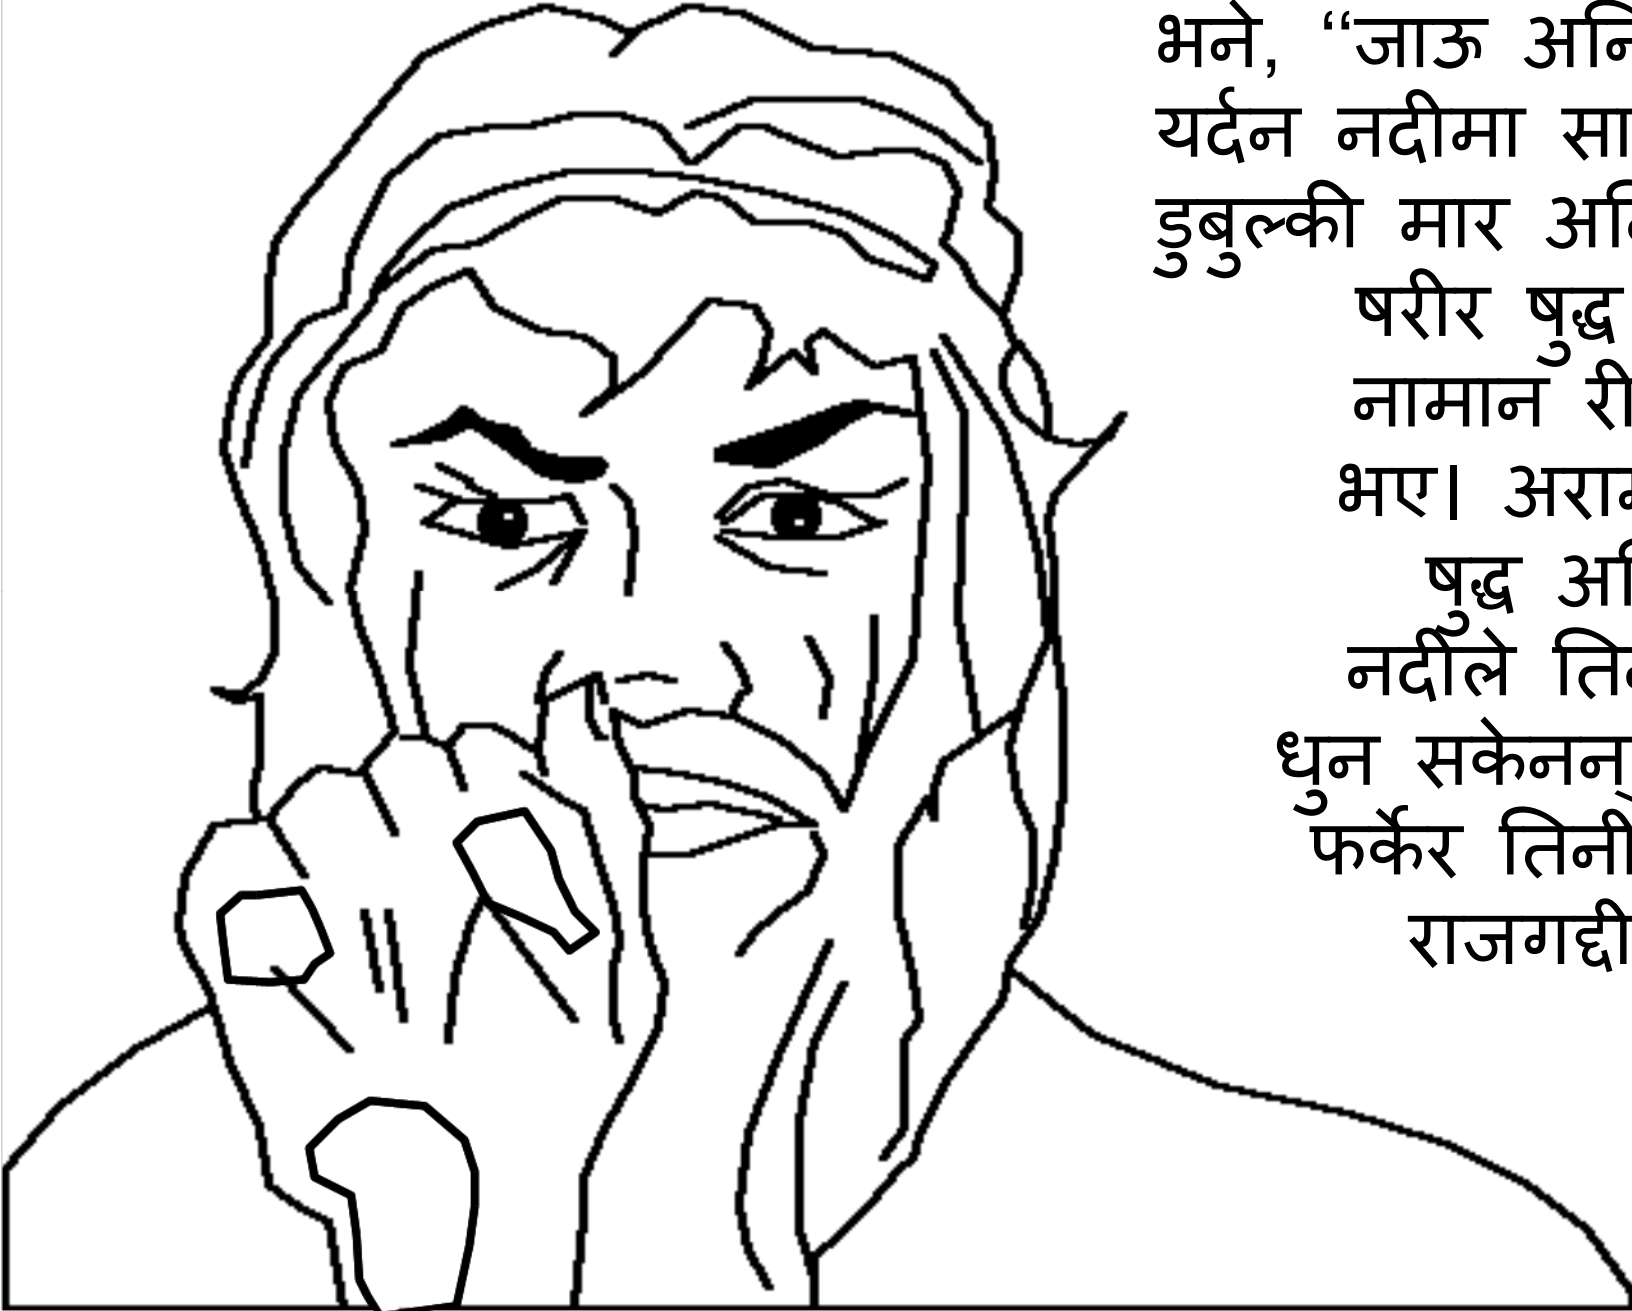 भने, “जाऊ
यर्दन नदीमा
डुबुल्की मार
षरीर षुद्ध
नामान
भए। अराम
षुद्ध
नदीले
धुन सकेनन्
फर्केर तिनी
राजगद्दी